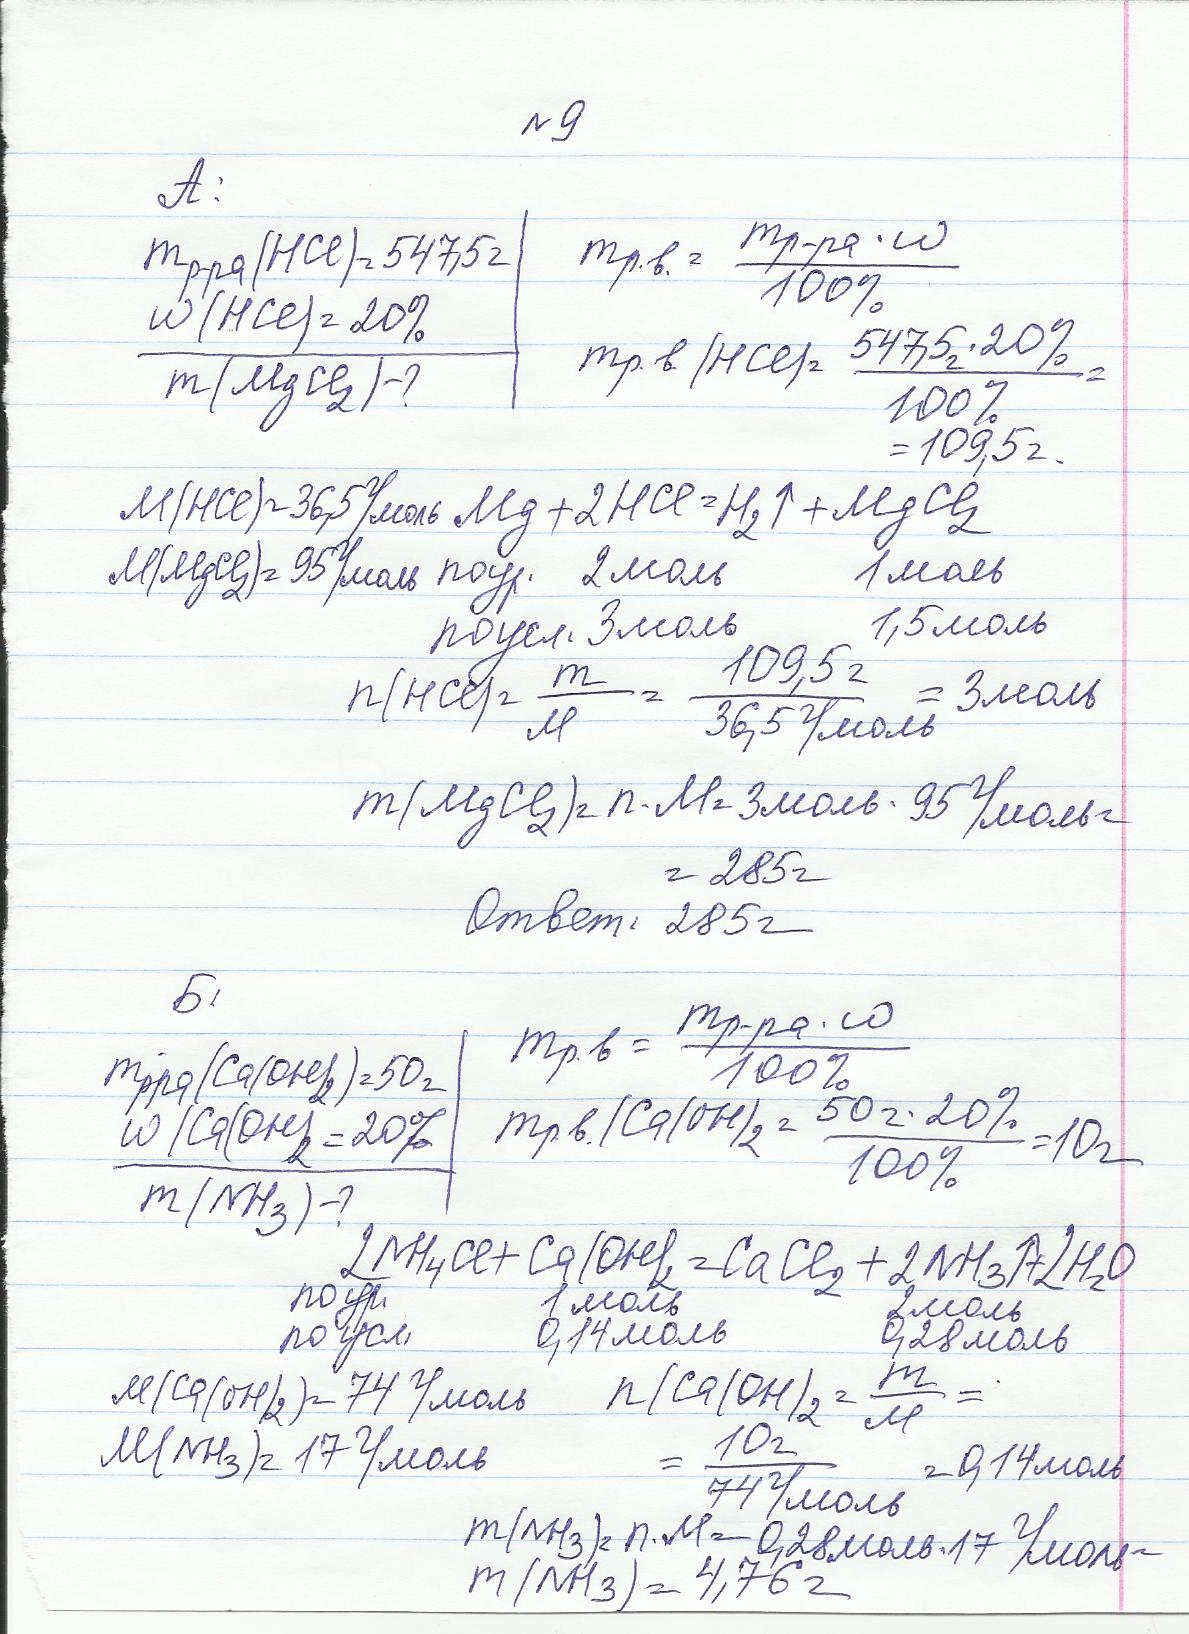 №9
А:
mр-ра(HCl)=547,5г
w(HCl)=20%
m(MgCl₂)-?
mр.в.= mр-ра·w / 100%
mр.в.(HCl)= 547,5г·20% / 100% =
=109,5г.
M(HCl)=36,5г/моль Mg+2HCl=H₂↑+MgCl₂
M(MgCl₂)=95г/моль по ур. 2моль 1моль
по усл. 3моль 1,5моль
n(HCl)= m / M = 109,5г / 36,5г/моль = 3моль
m(MgCl₂)=n·M=3моль·95г/моль=
=285г
Ответ: 285г
Б:
mр-ра(Ca(OH)₂)=50г
w(Ca(OH)₂=20%
m(NH₃)-?
mр.в= mр-ра·w / 100%
mр.в.(Ca(OH)₂= 50г·20% / 100% =10г
2NH₄Cl+Ca(OH)₂=CaCl₂+2NH₃↑+2H₂O
по ур. 1моль 2моль
по усл. 0,14моль 0,28моль
M(Ca(OH)₂)=74г/моль n(Ca(OH)₂= m / M =
M(NH₃)=17г/моль = 10г / 74г/моль =0,14моль
m(NH₃)=n·M=0,28моль·17г/моль=
m(NH₃)=4,76г